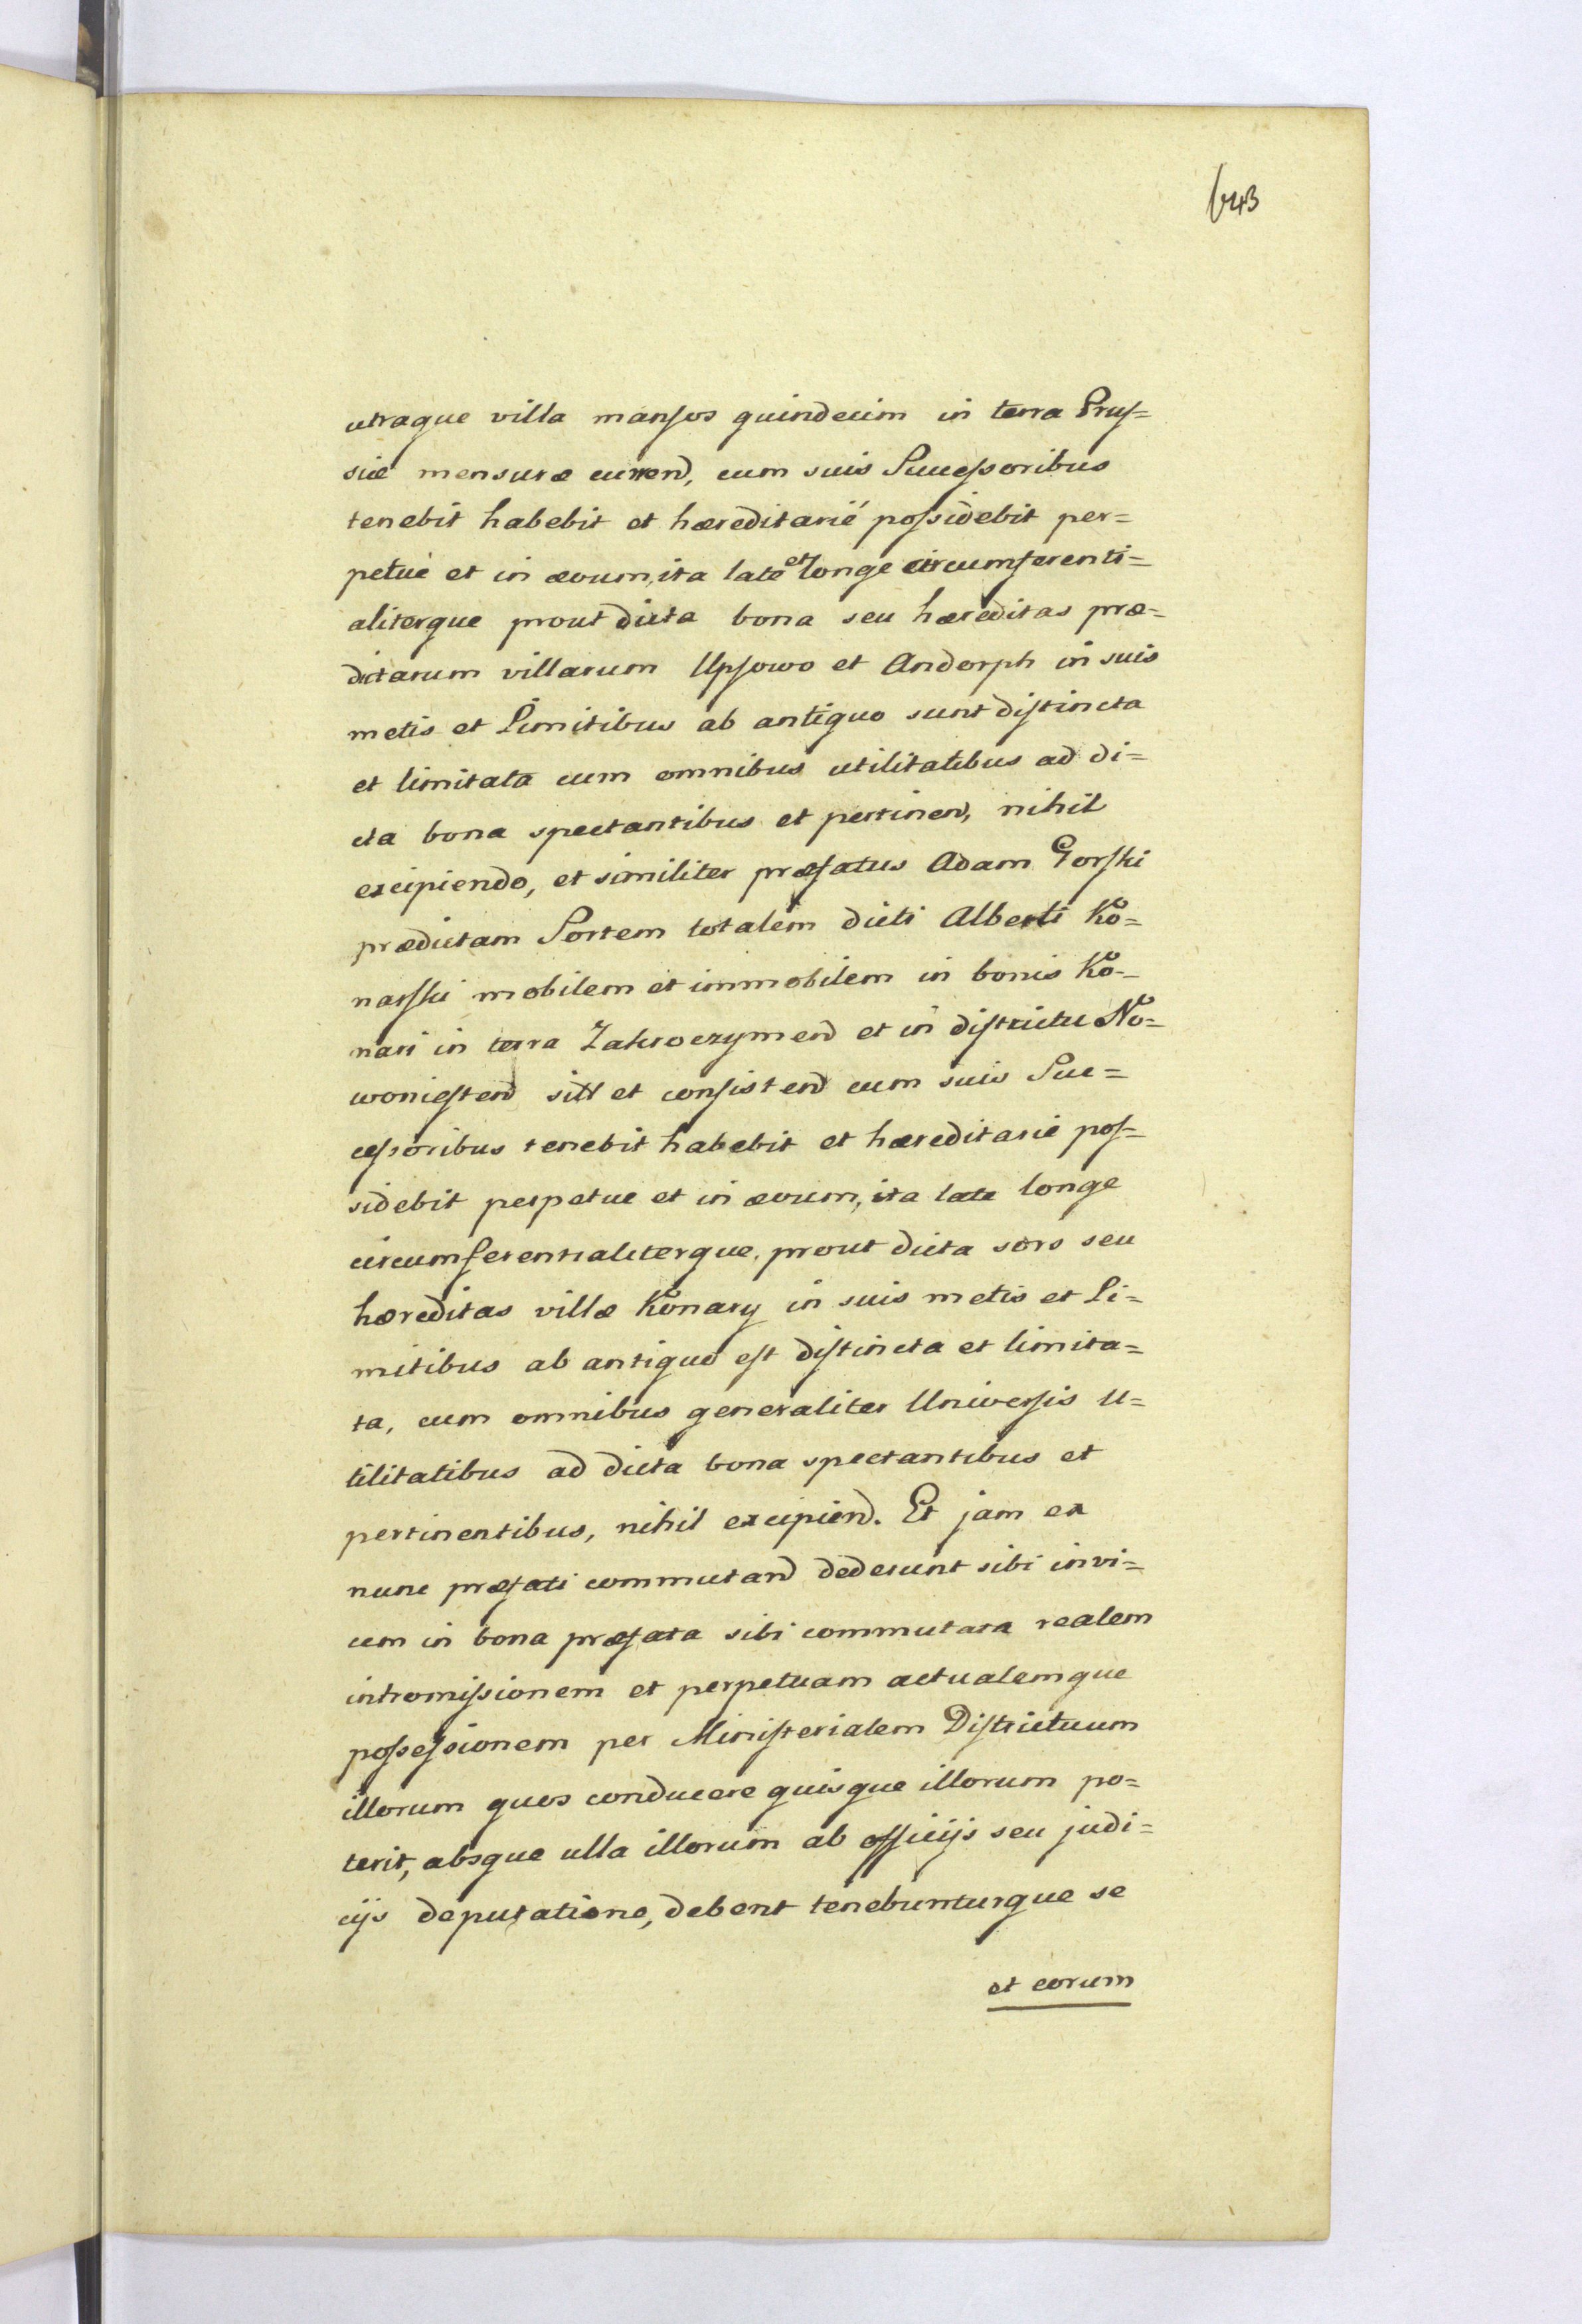 643
utraque villa mansos quindecim in terra Prus=
siæ mensuræ currend, cum suis Successoribus
tenebit habebit et hæreditarié possidebit per=
petué et in ævum, ita late et longe circumferenti=
aliterque prout dicta bona seu hæreditas præ=
dictarum villarum Upsowo et Andorph in suis
metis et Limitibus ab antiquo sunt distincta
et limitata cum omnibus utilitatibus ad di=
cta bona spectantibus et pertinen, nihil
excipiendo, et similiter præfatus Adam Gorski
prædictam Sortem totalem dicti Alberti Ko=
narski mobilem et immobilem in bonis Ko=
nari in terra Zakroczymend et in districtu No=
womiesten sitt et consistend cum suis Suc=
cessoribus tenebit habebit et hæreditarie pos=
sidebit perpetue et in ævum, ita late longe
circumferentialiterque, prout dicta sors seu
hæreditas villæ Konary in suis metis et Li=
mitibus ab antiquo est distincta et limita=
ta, cum omnibus generaliter Universis U=
tilitatibus ad dicta bona spectantibus et
pertinentibus, nihil excipiend. Et jam ex
nunc præfati commutand dederunt sibi invi=
cem in bona præfata sibi commutata realem
intromissionem et perpetuam actualemque
possessionem per Ministerialem Districtuum
illorum quos conducere quisque illorum po=
terit, absque ulla illorum ab officijs seu judi=
cijs deputatione, debent tenebunturque se
et eorum